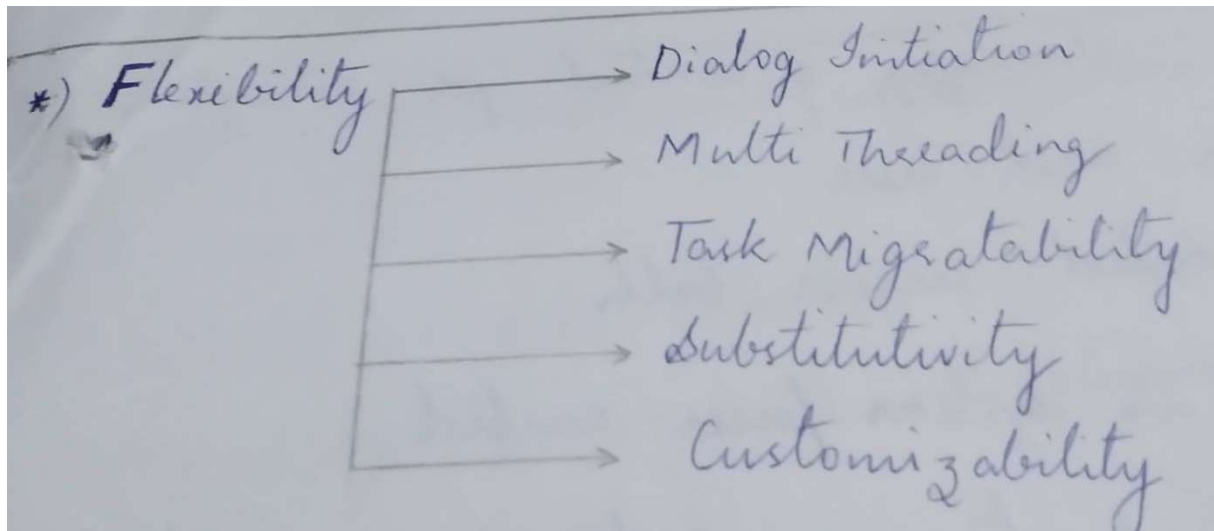 *) Flexibility
Dialog Initiation
Multi Threading
Task Migratability
Substitutivity
Customizability